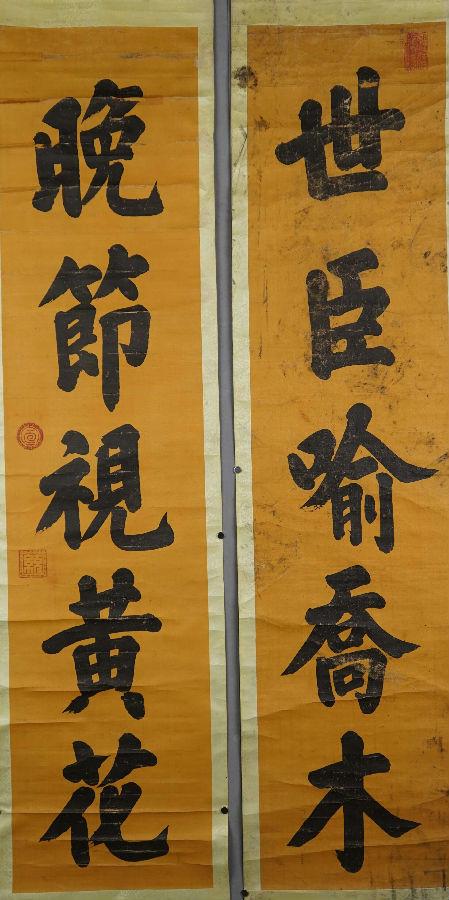 世臣喻喬木
晚節視黃花